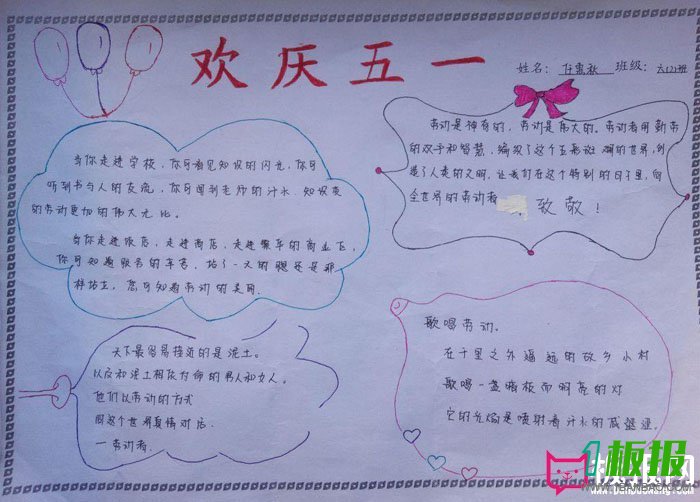 欢庆五一
姓名： 班级：六(2)班
劳动是神奇的，劳动是伟大的。劳动者用勤劳
的双手和智慧，编织了这个五彩斑斓的世界，创
造了人类的文明。让我们在这个特别的日子里，向
全世界的劳动者 致敬！
当你走进学校，你可看见知识的闪光，你可
听到书与人的交流，你可闻到老师的汗水，知识类
的劳动更加的伟大无比。
当你走进饭店，走进商店，走进繁华的商业
你可知道服务的辛苦，站了一天的腿还是那
样站立，您可知道劳动的美丽。
天下最容易接近的是泥土。
以及和泥土相依为命的男人和女人。
他们以劳动的方式
同这个世界真情对话
一劳动者
歌唱劳动。
在千里之外遥远的故乡小村
歌唱一盏嘴板而明亮的灯
它的光焰是喷射着汗水的咸涩涩。
1板报
WWW.1BANBAO.COM